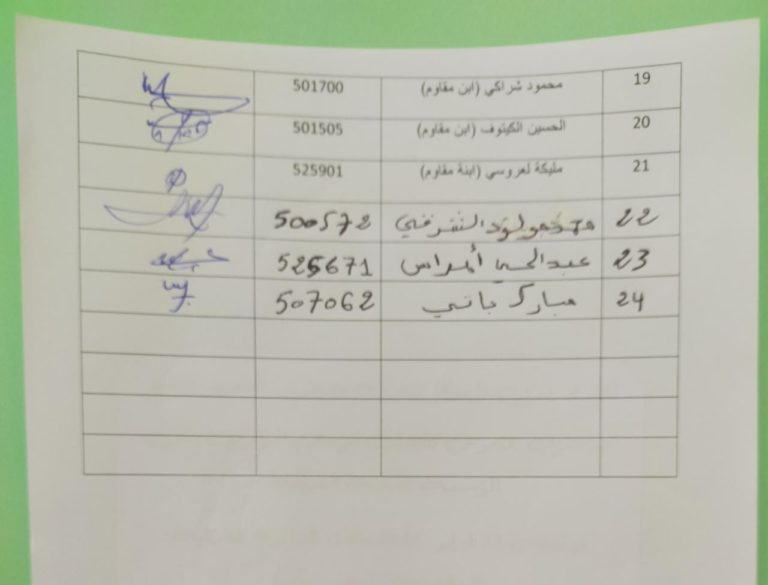 19 محمود شراكي (ابن مقاوم) 501700
20 الحسين الكيتوف (ابن مقاوم) 501505
21 مليكة لعروسي (ابنة مقاوم) 525901
22 الشرفي 500572
23 أمراس 525671
24 مبارك باني 507062